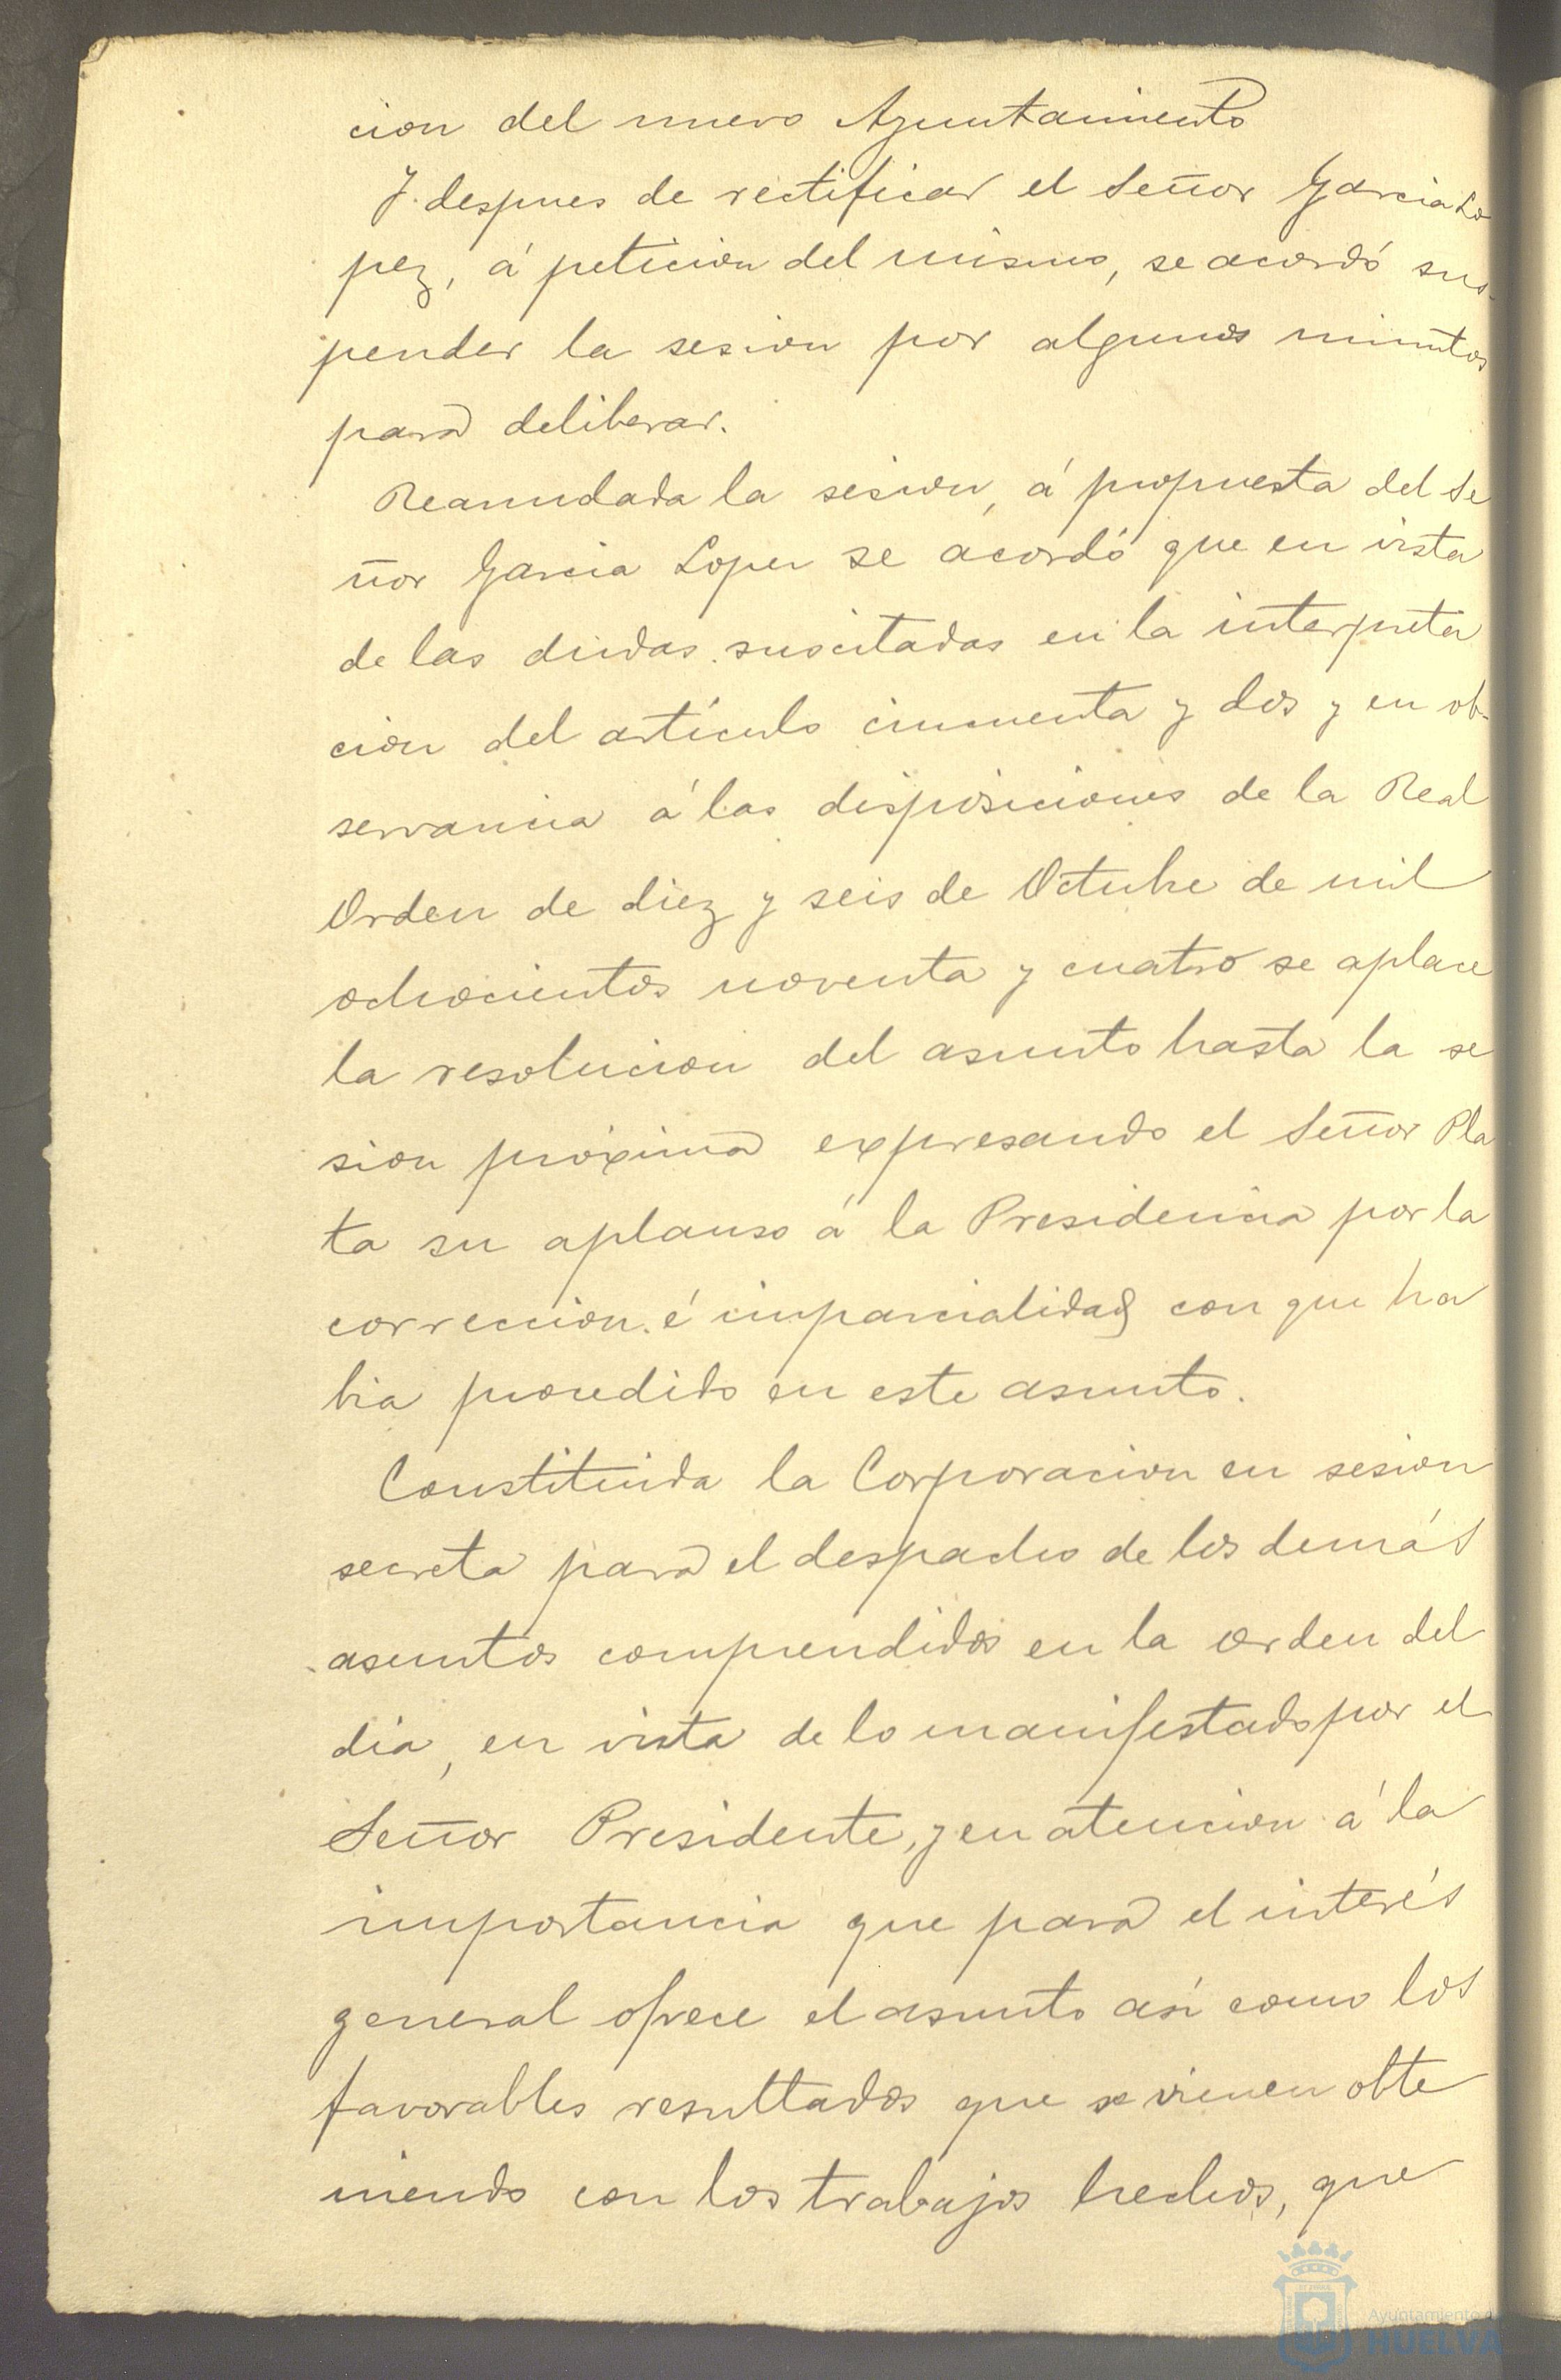 cion del nuevo Ayuntamiento
Y despues de rectificar el Señor Garcia Lo
pez, á peticion del mismo, se acordó sus-
pender la sesion por algunos minutos
para deliberar.
Reanudada la sesion, á propuesta del Se
ñor Garcia Lopez se acordó que en vista
de las dudas suscitadas en la interpreta
cion del artículo cincuenta y dos y en ob-
servancia á las disposiciones de la Real
Orden de diez y seis de Octubre de mil
ochocientos noventa y cuatro se aplace
la resolucion del asunto hasta la se
sion próxima expresando el Señor Pla
ta su aplauso á la Presidencia por la
correccion é imparcialidad con que ha
bia procedido en este asunto.
Constituida la Corporacion en sesion
secreta para el despacho de los demás
asuntos comprendidos en la orden del
dia, en vista de lo manifestado por el
Señor Presidente, y en atencion á la
importancia que para el interés
general ofrece el asunto así como los
favorables resultados que se vienen obte
niendo con los trabajos hechos, que
Ayuntamiento de
HUELVA